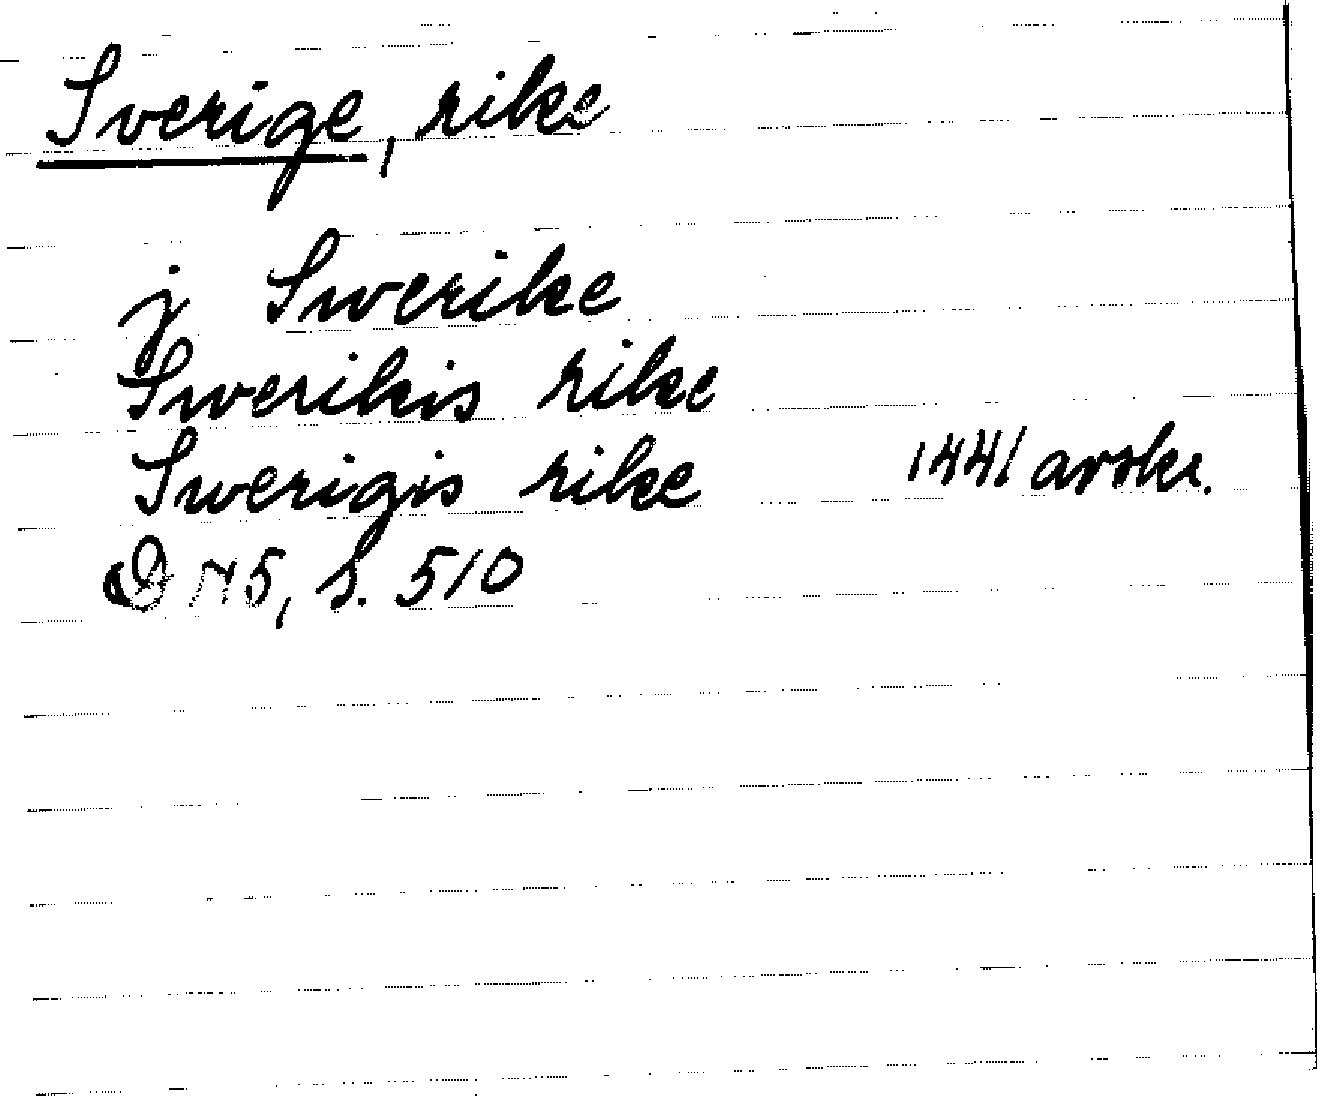 Sverige, rike
j Swerike
Swerikis rike
Swerigis rike 1441 avskr.
DN5, s. 510